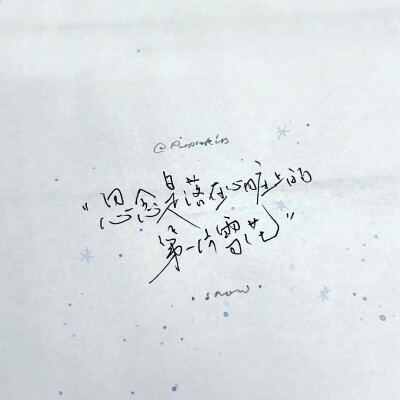 "思念是落在心脏上的
第一片雪花"
·snow·